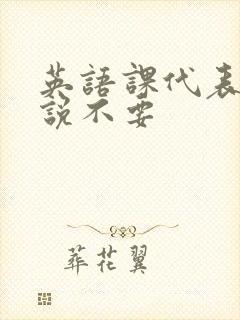 英語課代表
說不要
葬花翼